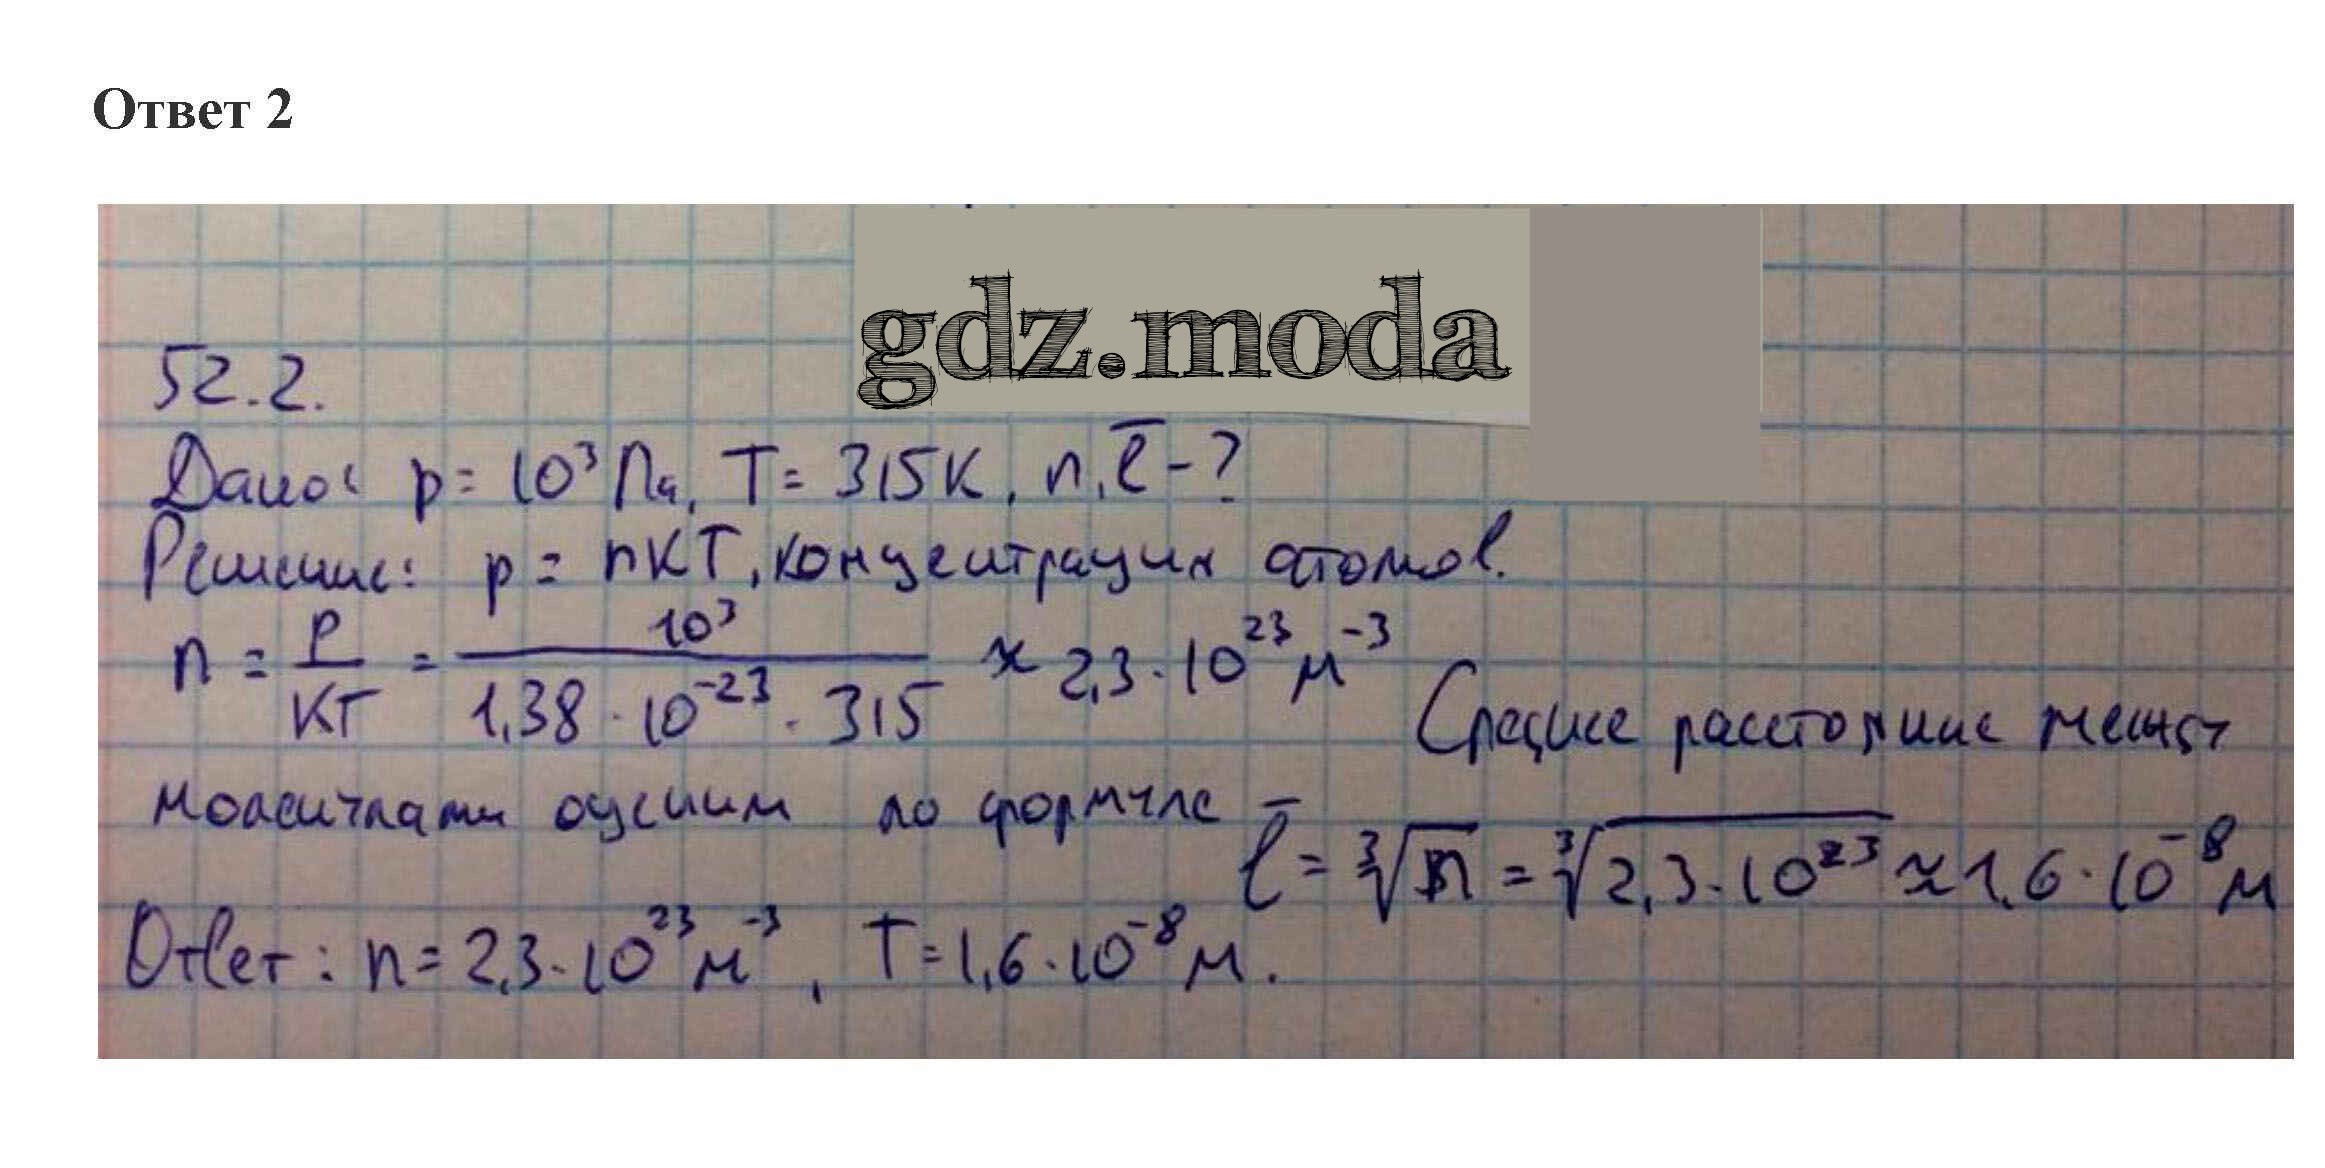 Ответ 2
gdz.moda
52.2.
Дано: p = 10³ Па, T = 315К, n, l̅ - ?
Решение: p = nкT, концентрация атомов.
n = p/кT = 10³/(1,38 · 10⁻²³ · 315) ≈ 2,3 · 10²³ м⁻³ Среднее расстояние между
молекулами оценим по формуле l̅ = ∛n = ∛(2,3 · 10²³) ≈ 1,6 · 10⁻⁸ м
Ответ: n = 2,3 · 10²³ м⁻³, T = 1,6 · 10⁻⁸ м.